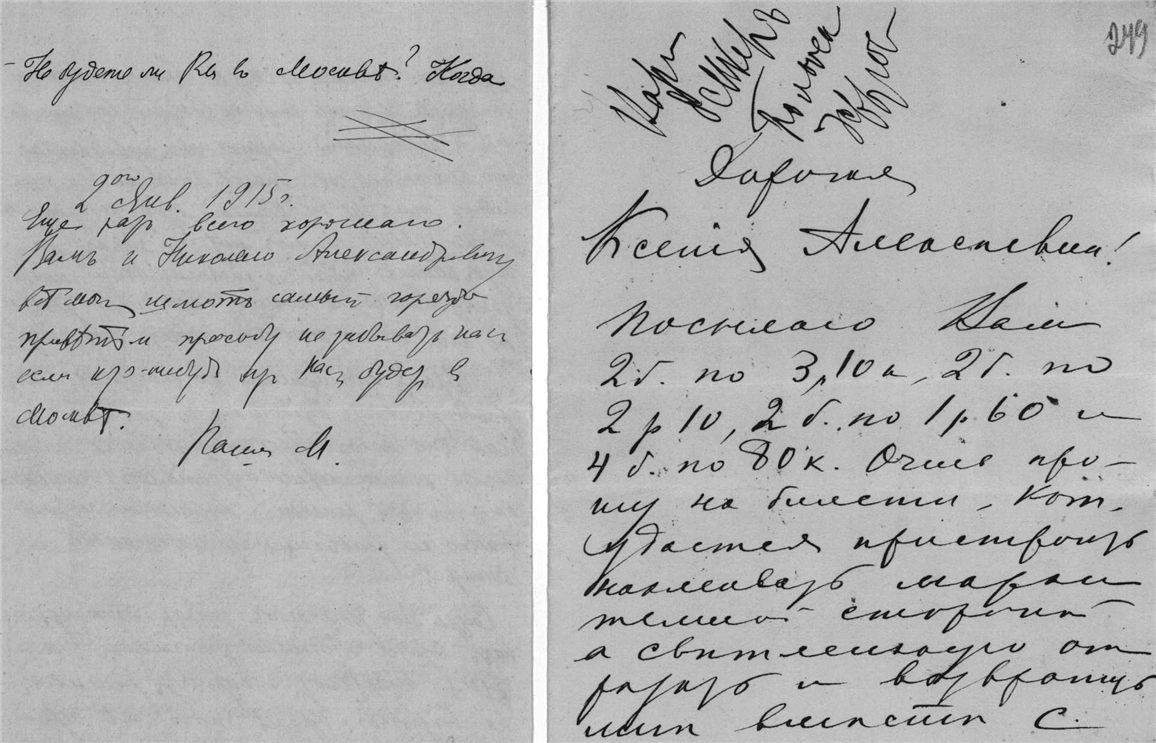 Не будете ли Вы в Москвѣ? Когда
2ого Янв. 1915 г.
Еще раз всего хорошаго.
Вамъ и Николаю Александровичу
всѣ мы шлютъ самый горячій
привѣтъ и просьбу не забывать нас
если кто-нибудь из Вас будет в
Москвѣ.
М.
249
Дорогая
Ксенія Алексѣевна!
Посылаю Вам
2 б. по 3 р. 10 к, 2 б. по
2 р 10, 2 б. по 1 р. 60 и
4 б. по 80 к. Очень про-
шу на билеты, кот.
удастся пристроить
наклеивать марки
темной стороной
а свѣтленькую от
резать и возвратить
мнѣ вмѣстѣ с